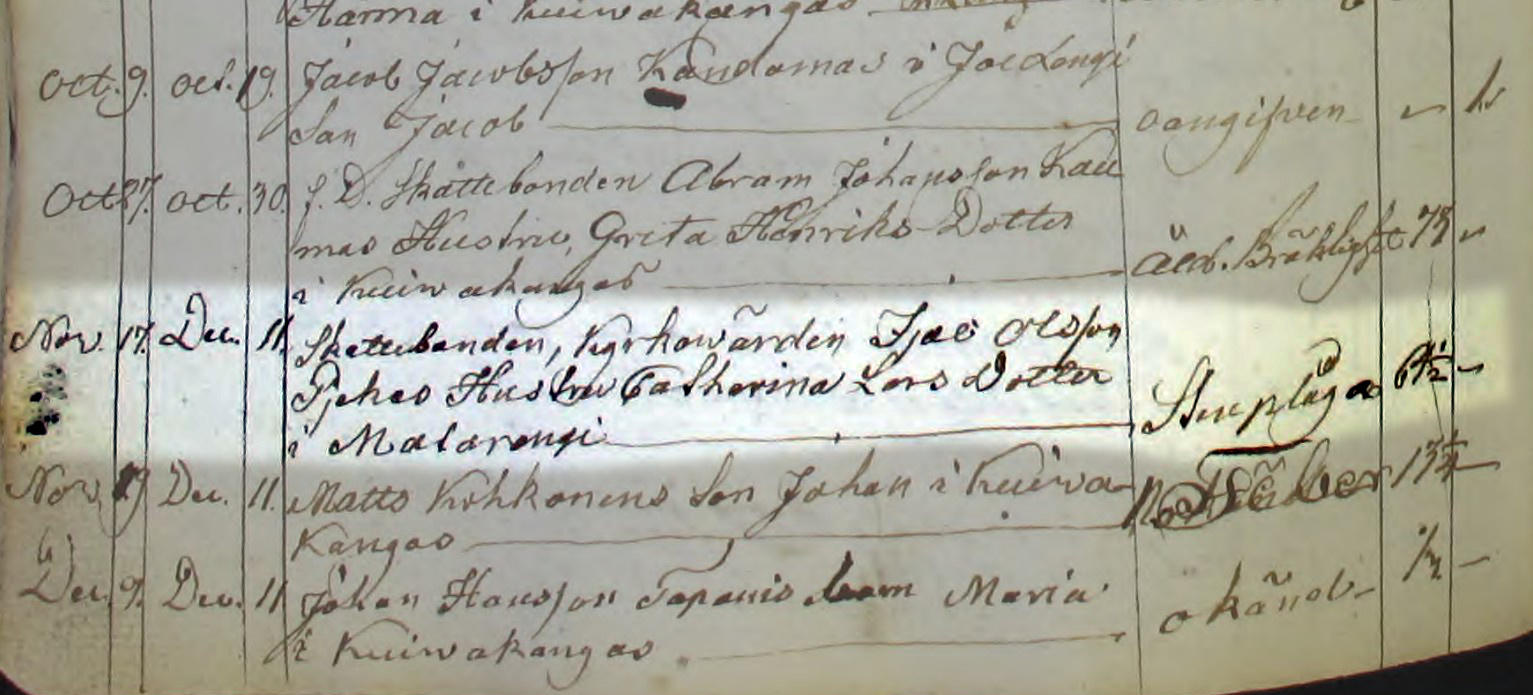 Harma i Kuiwakangas
Oct. 9. Oct. 19. Jacob Jacobsson Kandamas i Joelongi
Son Jacob oangifven 1.
Oct 27. Oct. 30. f. D. Skattebonden Abram Johansson Kau
mas Hustru, Greta Henriks Dotter
i Kuiwakangas Åld. Bräklighet 73
Nov. 17. Dec. 11. Skattebonden, Kyrkowärden Isac Olsson
Pjekes Hustru Catharina Lars Dotter
i Matarengi Stenplåga 61½
Nov. 19 Dec. 11. Matts Kohkonens Son Johan i Kuiwa-
Kangas 13¼
Dec. 9. Dec. 11 Johan Hansson Tapanis barn Maria
i Kuiwakangas okänd